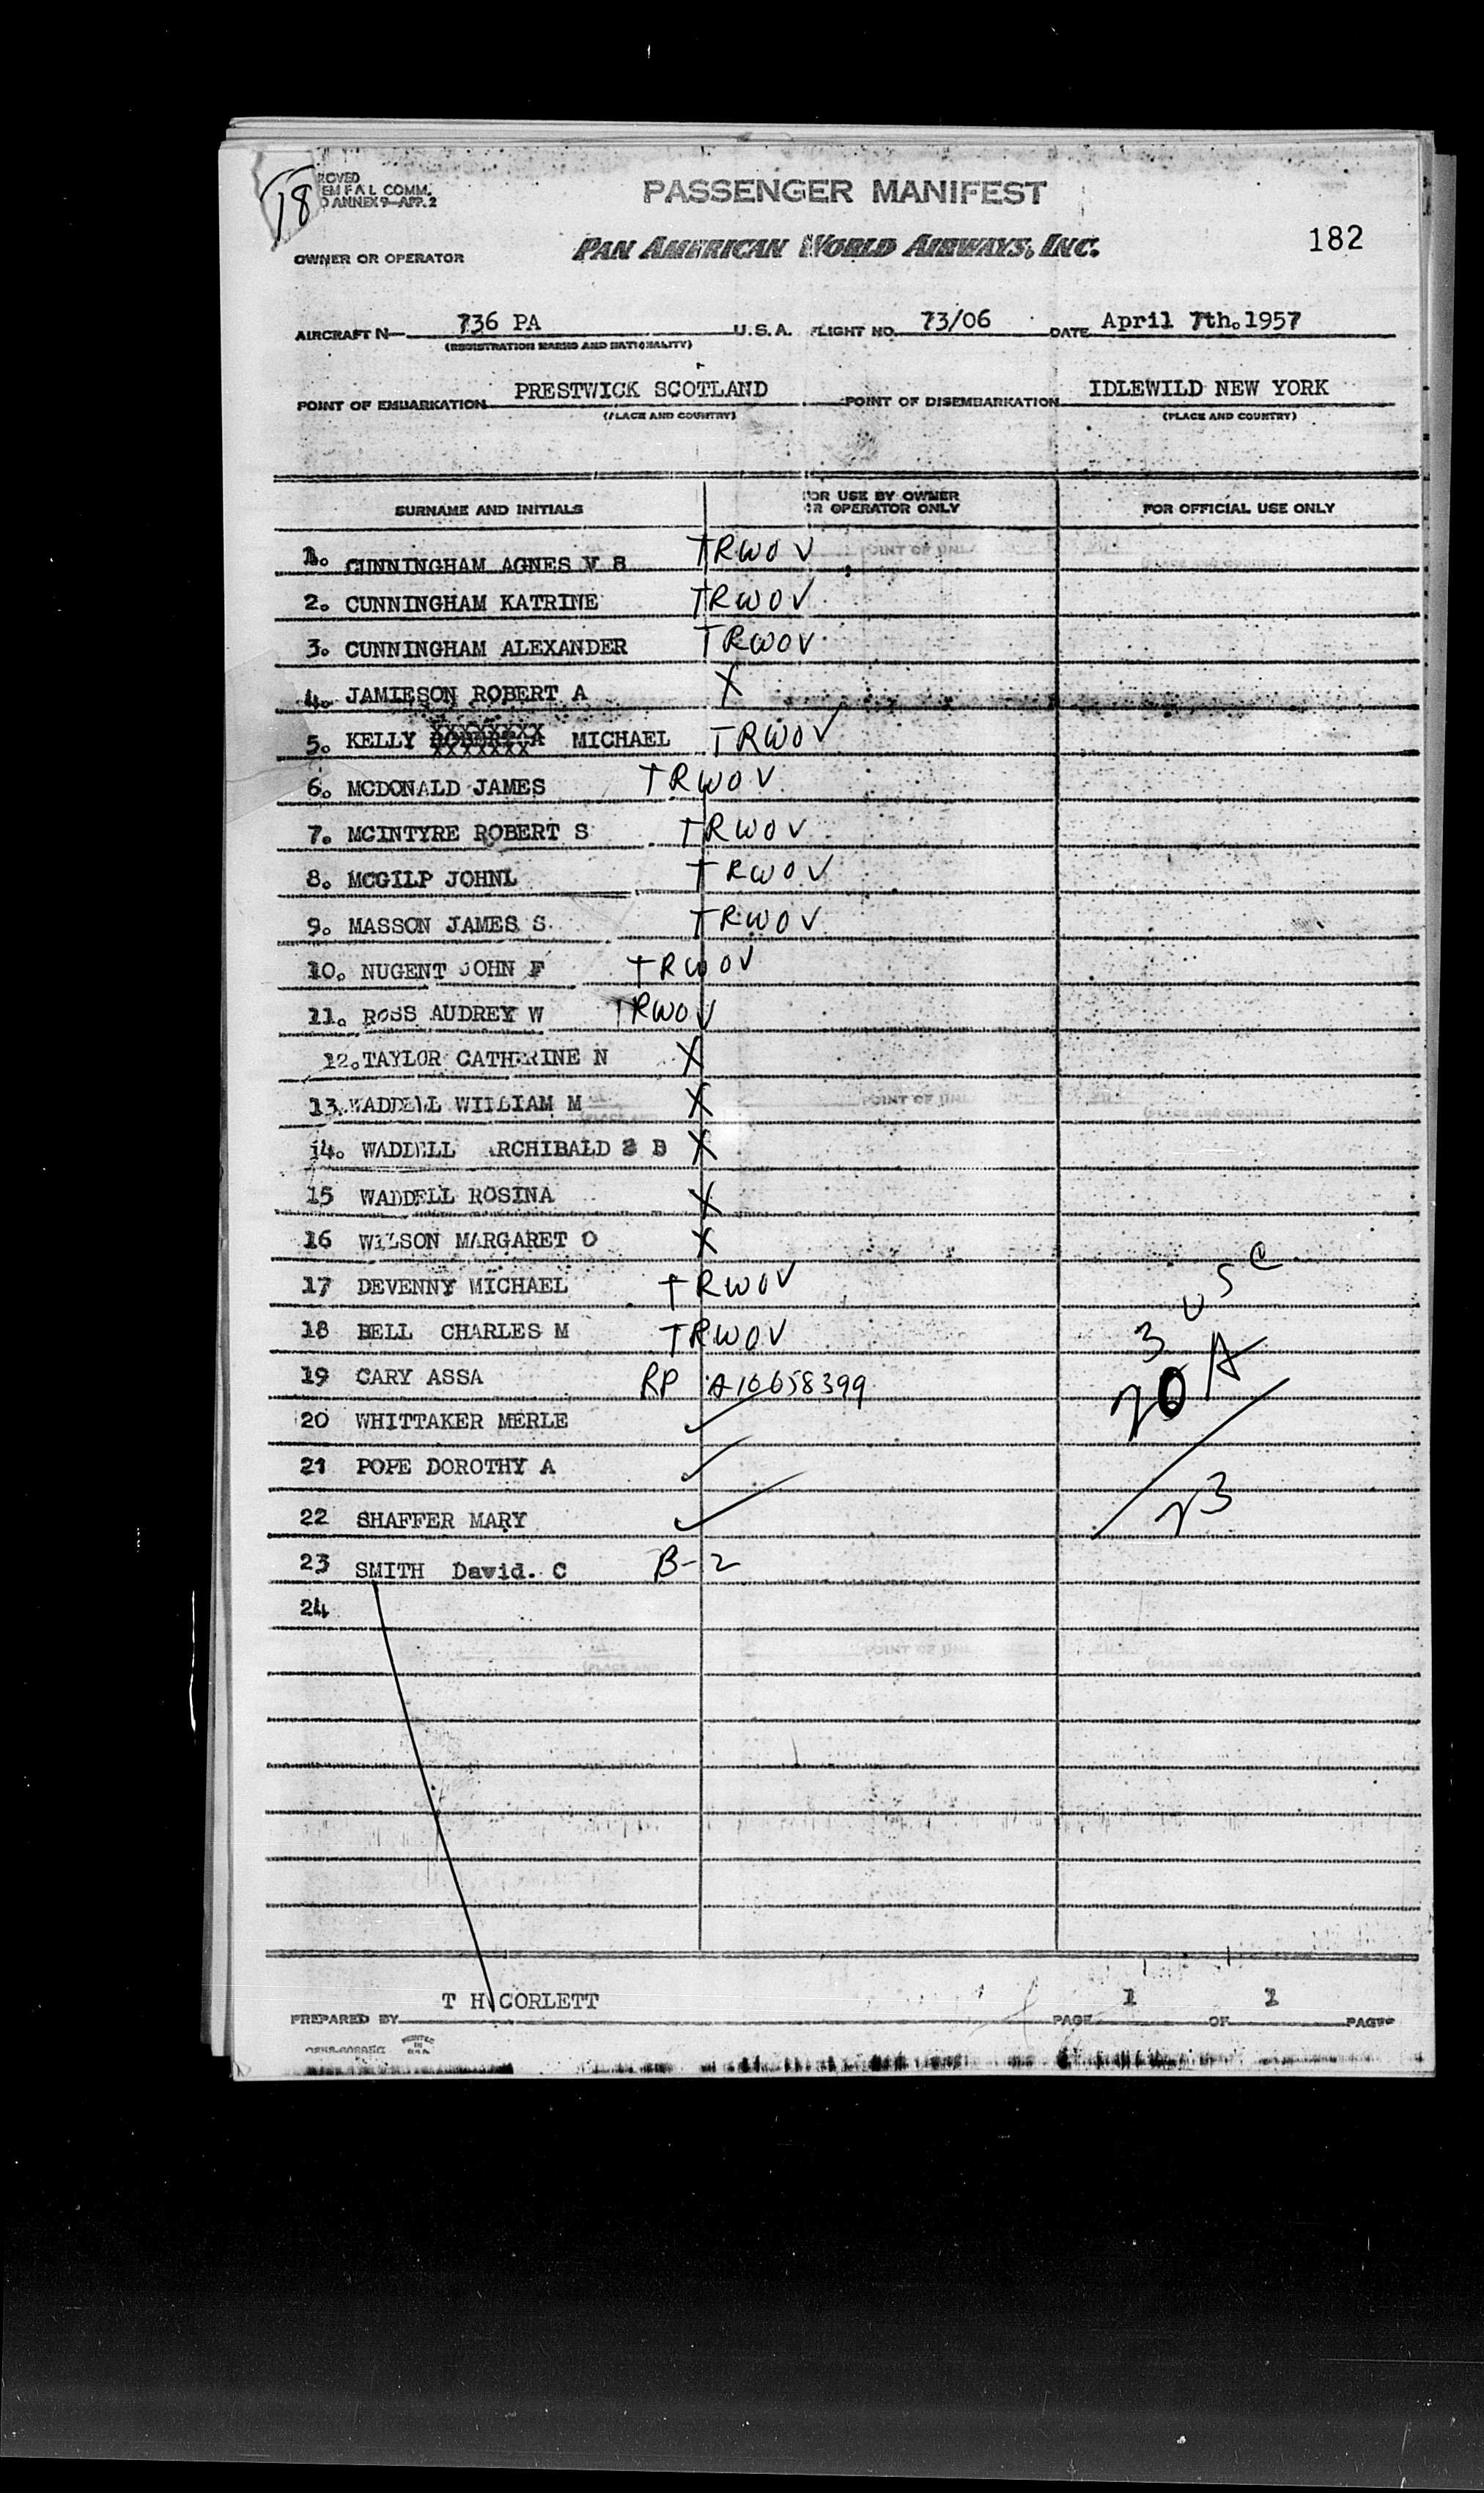 18
ROVED
EM F A L COMM.
O ANNEX 9—APP. 2
PASSENGER MANIFEST
OWNER OR OPERATOR
PAN AMERICAN WORLD AIRWAYS, INC.
182
AIRCRAFT N 736 PA U.S.A. FLIGHT NO. 73/06 DATE April 7th. 1957
(REGISTRATION MARKS AND NATIONALITY)
POINT OF EMBARKATION PRESTWICK SCOTLAND POINT OF DISEMBARKATION IDLEWILD NEW YORK
(PLACE AND COUNTRY) (PLACE AND COUNTRY)
SURNAME AND INITIALS
FOR USE BY OWNER
OR OPERATOR ONLY
FOR OFFICIAL USE ONLY
1. CUNNINGHAM AGNES V S TRWOV
2. CUNNINGHAM KATRINE TRWOV
3. CUNNINGHAM ALEXANDER TRWOV
4. JAMIESON ROBERT A X
5. KELLY MICHAEL TRWOV
6. MCDONALD JAMES TRWOV
7. MCINTYRE ROBERT S TRWOV
8. MCGILP JOHNL TRWOV
9. MASSON JAMES S. TRWOV
10. NUGENT JOHN F TRWOV
11. ROSS AUDREY W TRWOV
12. TAYLOR CATHERINE N X
13. WADDELL WILLIAM M X
14. WADDELL ARCHIBALD S B X
15 WADDELL ROSINA X
16 WILSON MARGARET O X
17 DEVENNY MICHAEL TRWOV
18 BELL CHARLES M TRWOV
19 CARY ASSA RP A10658399
20 WHITTAKER MERLE ✓
21 POPE DOROTHY A ✓
22 SHAFFER MARY ✓
23 SMITH David. C B-2
24
3 USC
20 A
23
PREPARED BY T H CORLETT PAGE 1 OF 1 PAGES
PRINTED
IN
U.S.A.